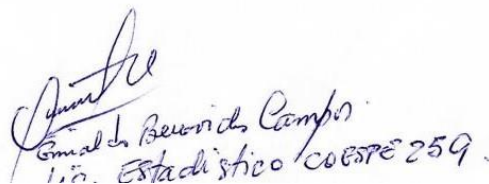 Benavides Campos
Lic. Estadístico COESPE 259.